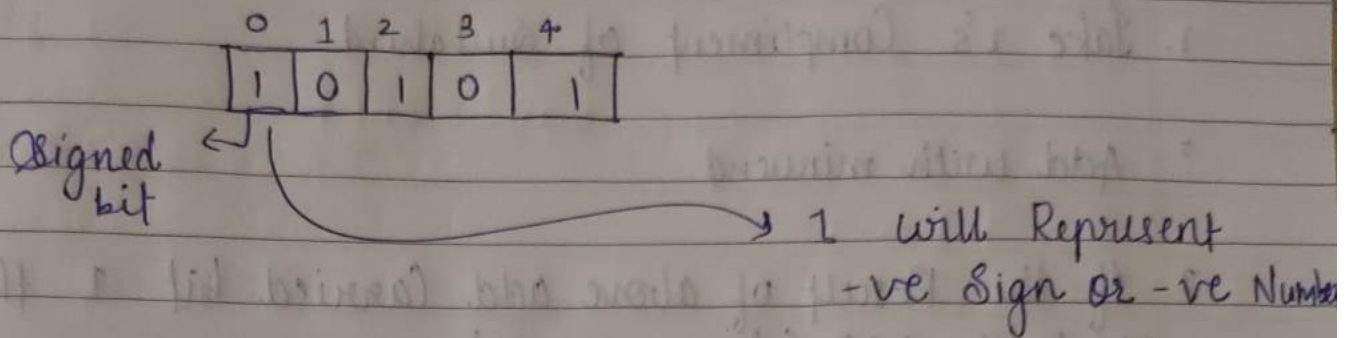 0 1 2 3 4
1 0 1 0 1
Signed
bit
1 will Represent
-ve Sign or -ve Number